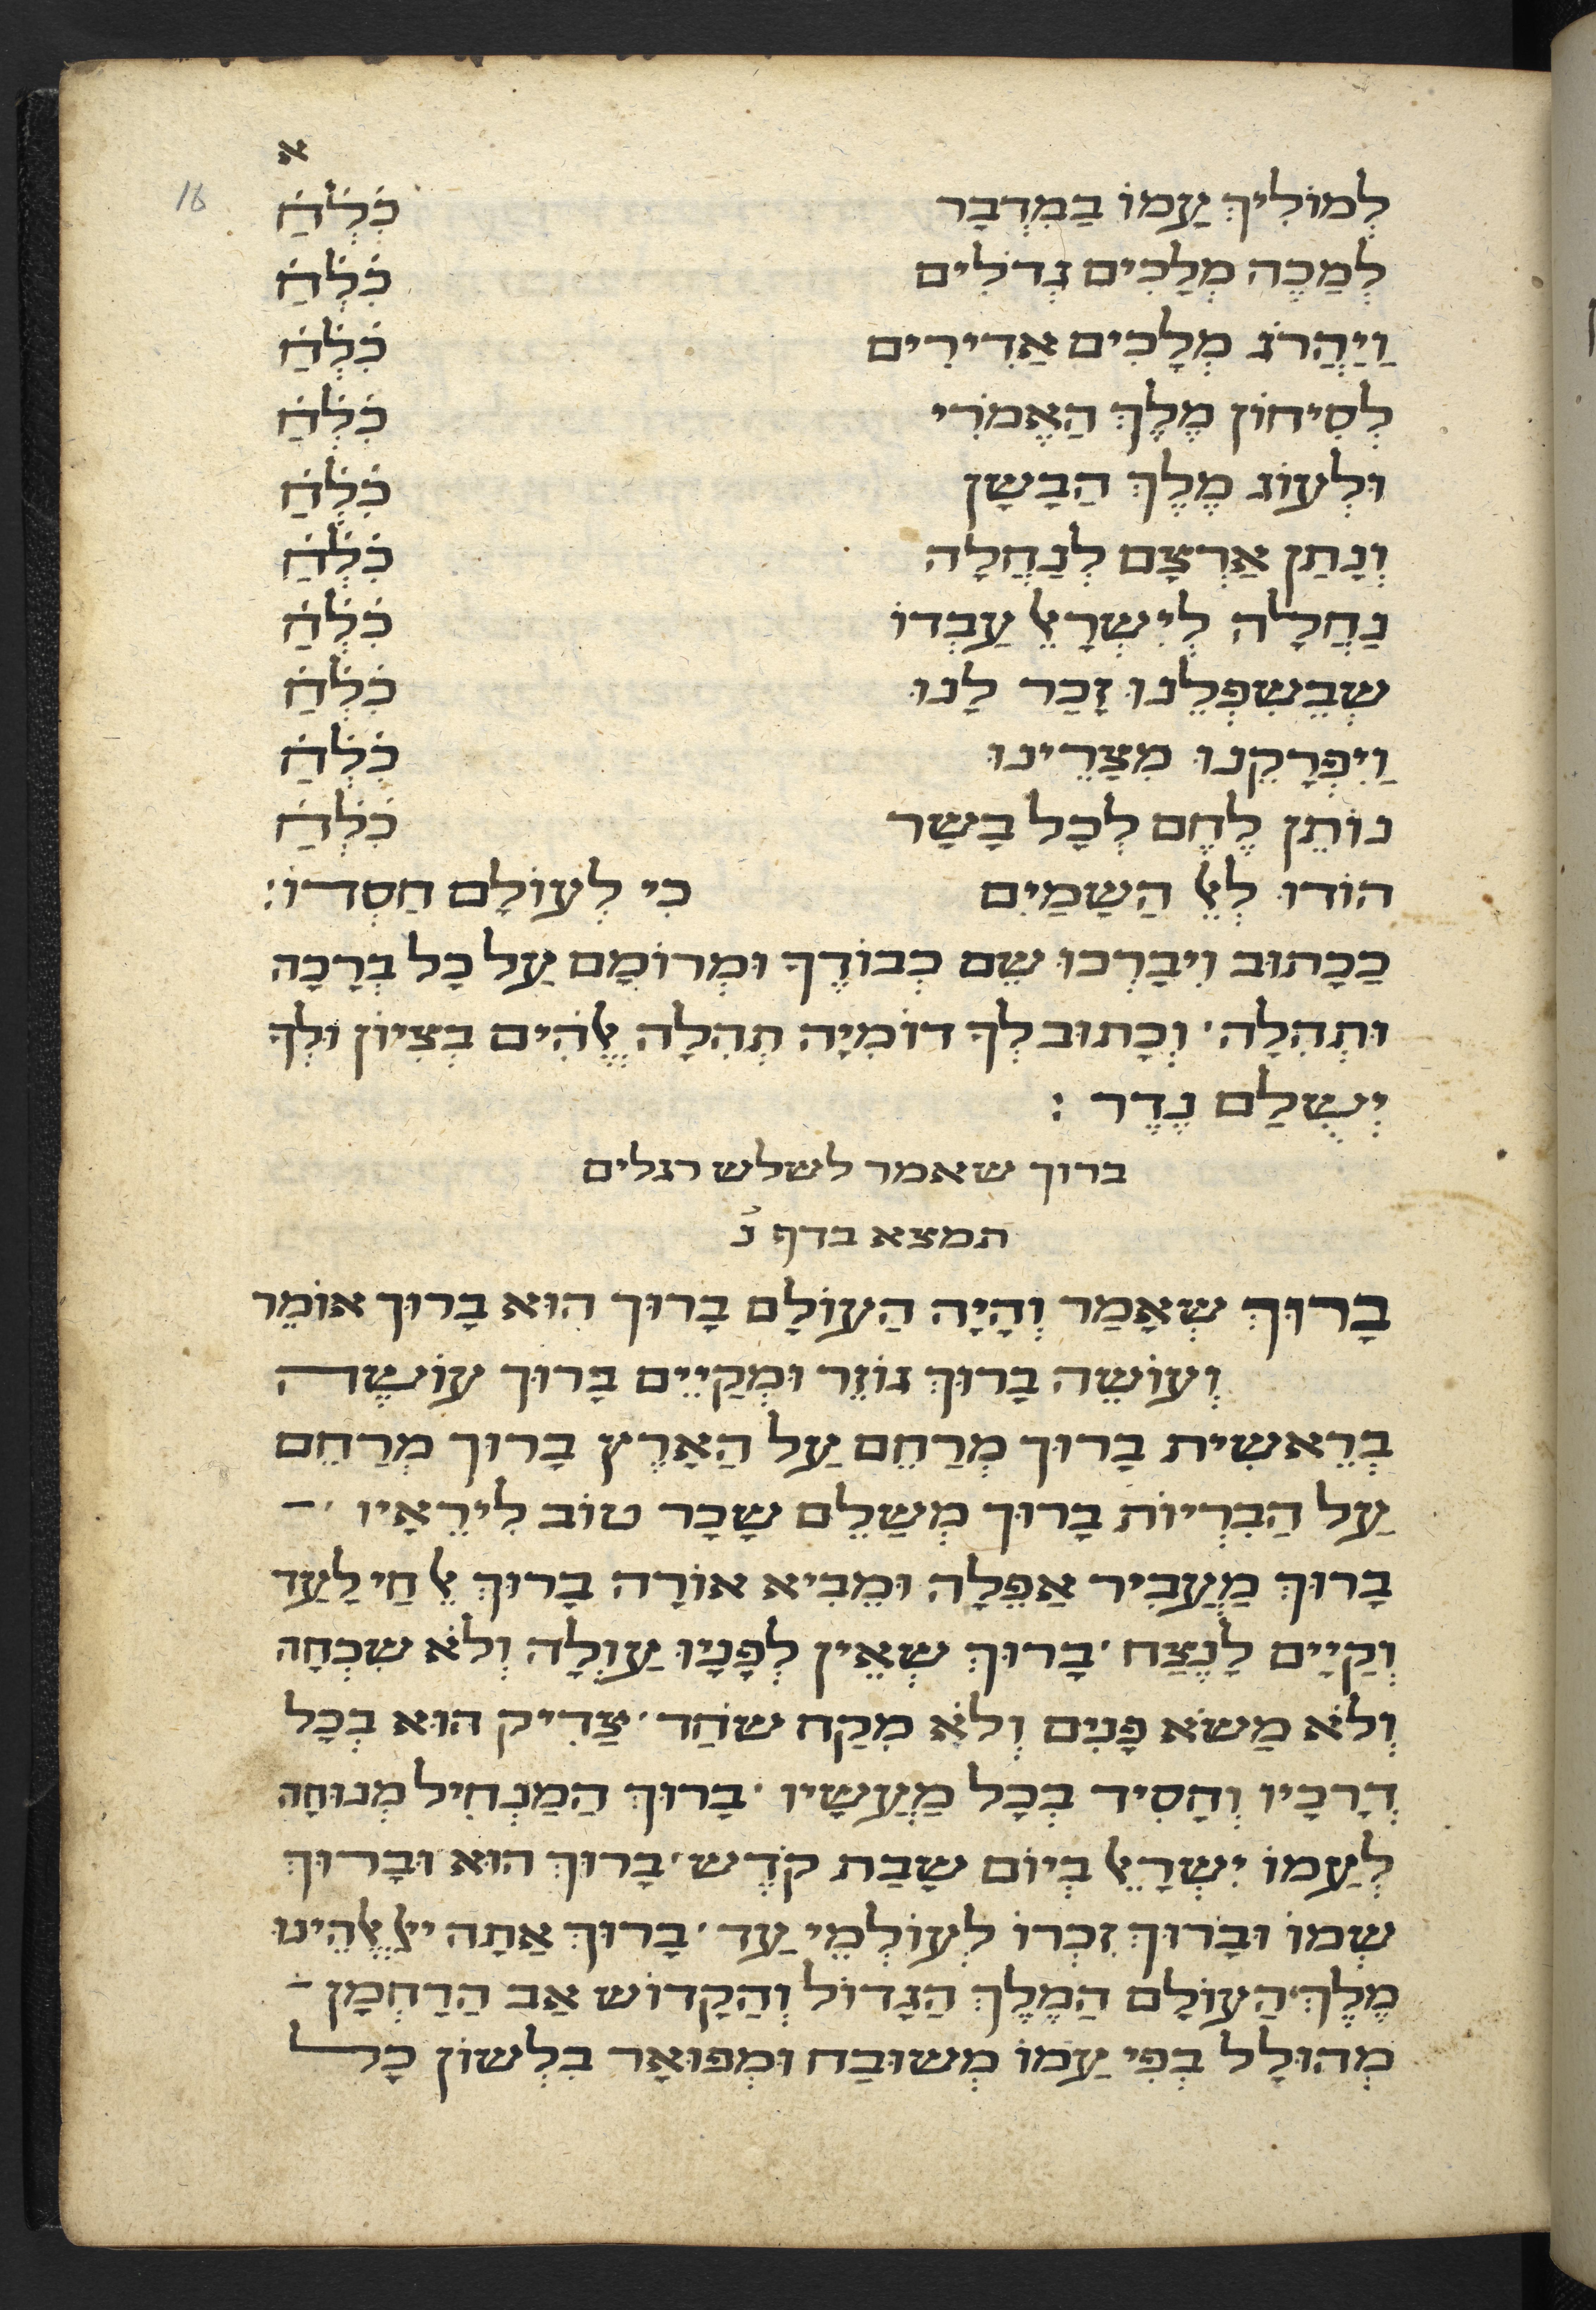 א
16
לְמוֹלִיךְ עַמוֹ בַמִדְבָר כִלְחַ
לְמַכֶה מְלָכִים גְדֹלִים כִלְחַ
וַיַהֲרֹג מְלָכִים אַדִירִים כִלְחַ
לְסִיחוֹן מֶלֶךְ הַאֱמֹרִי כִלְחַ
וּלְעוֹג מֶלֶךְ הַבָשָן כִלְחַ
וְנָתַן אַרְצָם לְנַחֲלָה כִלְחַ
נַחֲלָה לְיִשְרָאֵל עַבְדוֹ כִלְחַ
שְבְשִפְלֵנוּ זָכַר לָנוּ כִלְחַ
וַיִפְרְקֵנוּ מִצָרֵינוּ כִלְחַ
נוֹתֵן לֶחֶם לְכָל בָשָר כִלְחַ
הוֹדוּ לְאֵל הַשָמַיִם כִי לְעוֹלָם חַסְדוֹ:
כַכָתוּב וִיבָרְכוּ שֵם כְבוֹדֶךָ וּמְרוֹמָם עַל כָל בְרָכָה
וּתְהִלָה׳ וְכָתוּב לְךָ דוֹמִיָה תְהִלָה אֱלֹהִים בְצִיוֹן וּלְךָ
יְשֻלַם נֶדֶר :
ברוך שאמר לשלש רגלים
תמצא בדף נׄ
בָרוּךְ שְאָמַר וְהָיָה הַעוֹלָם בָרוּךְ הוּא בָרוּךְ אוֹמֵר
וְעוֹשֶה בָרוּךְ גוֹזֵר וּמְקַיֵים בָרוּךְ עוֹשֶה
בְרֵאשִית בָרוּךְ מְרַחֵם עַל הַאָרֶץ בָרוּךְ מְרַחֵם
עַל הַבְרִיוֹת בָרוּךְ מְשַלֵם שָכָר טוֹב לִירֵאָיו ׳
בָרוּךְ מַעֲבִיר אַפֵלָה וּמֵבִיא אוֹרָה בָרוּךְ אֵל חַי לָעַד
וְקַיָים לָנֶצַח ׳ בָרוּךְ שְאֵין לְפָנָיו עַוְלָה וְלֹא שִכְחָה
וְלֹא מַשֹא פָנִים וְלֹא מִקַח שֹחַד ׳ צַדִיק הוּא בְכָל
דְרָכָיו וְחָסִיד בְכָל מַעֲשָיו ׳ בָרוּךְ הַמַנְחִיל מְנוּחָה
לְעַמוֹ יִשְרָאֵל בְיוֹם שָבַת קֹדֶש ׳ בָרוּךְ הוּא וּבָרוּךְ
שְמוֹ וּבָרוּךְ זִכְרוֹ לְעוֹלְמֵי עַד ׳ בָרוּךְ אַתָה יי אֱלֹהֵינוּ
מֶלֶךְ הַעוֹלָם הַמֶלֶךְ הַגָדוֹל וְהַקָדוֹש אַב הַרַחְמָן
מְהוּלָל בְפִי עַמוֹ מְשוּבַח וּמְפוּאָר בִלְשוֹן כָל